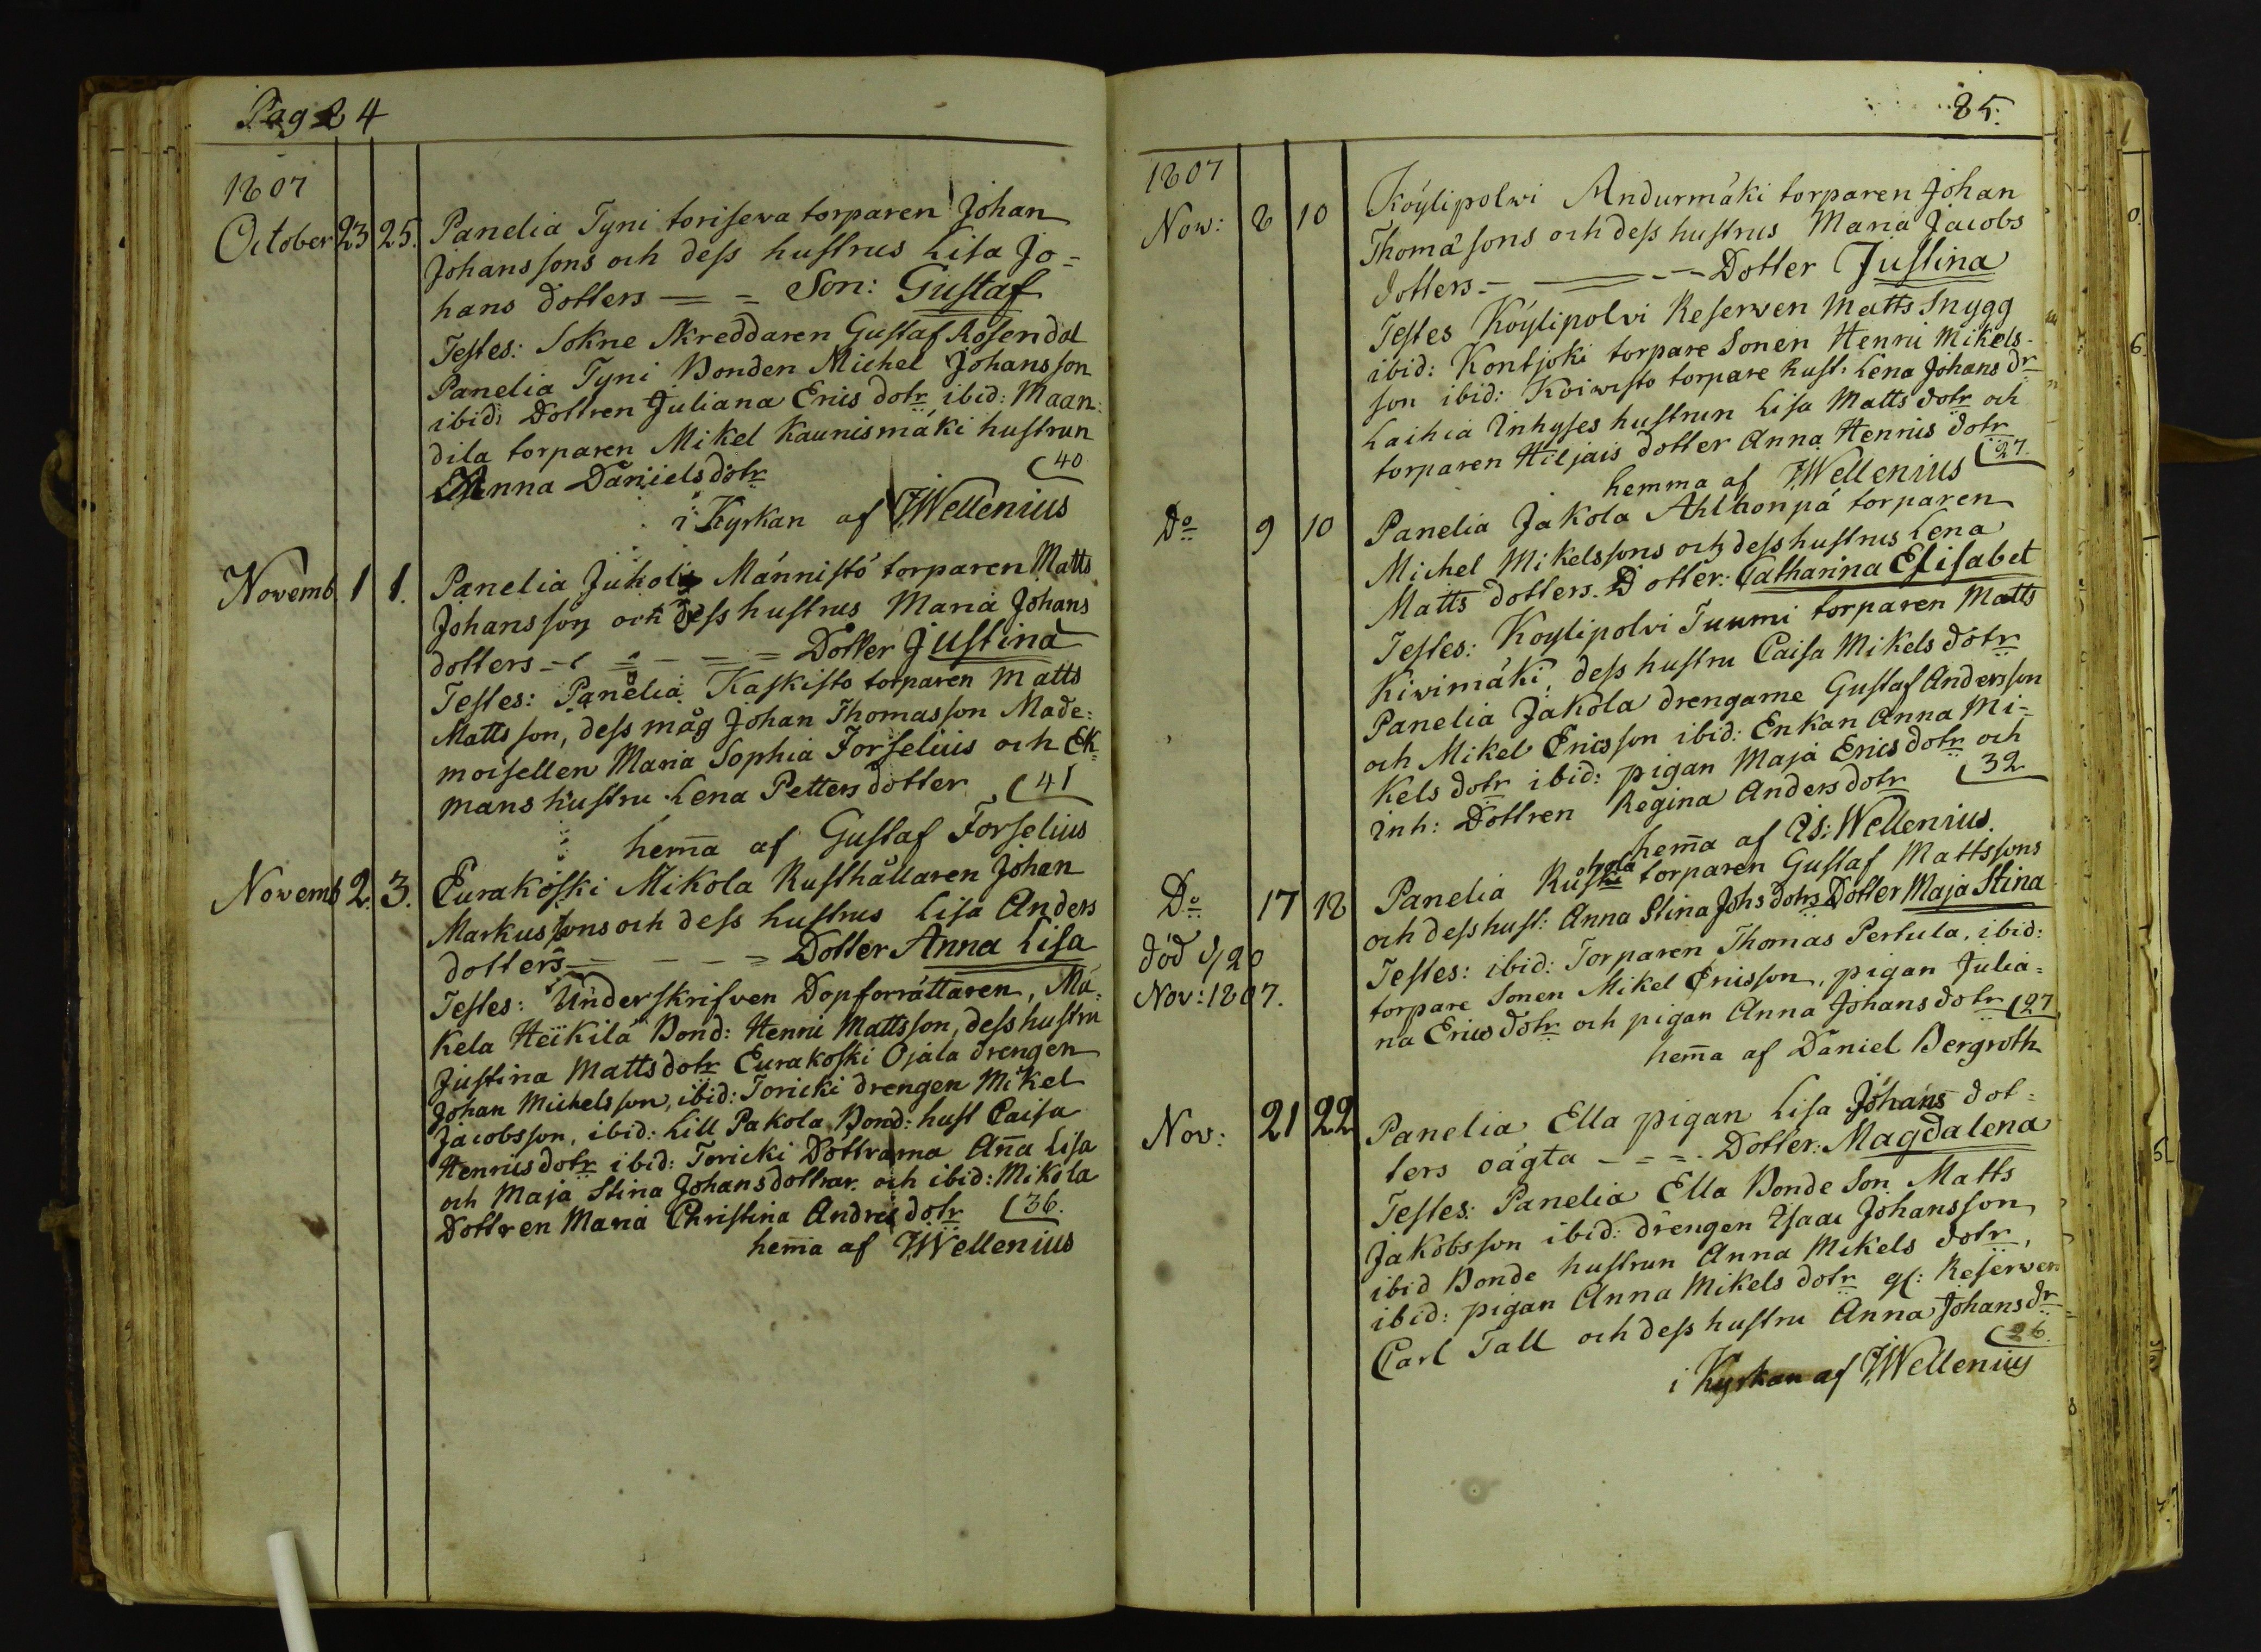 Pag 84
1807
October 23 25. Panelia Tyni toriseva torparen Johan
Johanssons och dess hustrus Lisa Jo=
hans dotters — = Son: Gustaf
Testes: Sokne Skreddaren Gustaf Rosendal
Panelia Tyni Bonden Michel Johansson
ibid: Dottren Juliana Erics dotr ibid: Maan:
dila torparen Mikel Kaunismäki hustrun
Anna Danielsdotr (40
i Kyrkan af JWellenius
Novemb. 1 1. Panelia Juhola Männistö torparen Matts
Johansson och dess hustrus Maria Johans
dotters - = - = = Dotter Justina
Testes: Panelia Kaskisto torparen Matts
Mattsson, dess måg Johan Thomasson Made:
moisellen Maria Sophia Forselius och Ek=
mans hustru Lena Petters dotter (41
hem̄a af Gustaf Forselius
Novemb 2. 3. Eurakoski Mikola Rusthållaren Johan
Markussons och dess hustrus Lisa Anders
dotters — - - = Dotter Anna Lisa
Testes: Underskrifven Dopforrättaren, Mä:
kelä Heikilä Bond: Henric Mattsson, dess hustru
Justina Mattsdotr Eurakoski Ojala drengen
Johan Michelsson, ibid: Toricki drengen Mikel
Jacobsson, ibid: Lill Pakola Bond: hust Caisa
Henricsdotr ibid: Toricki Döttrarna An̄a Lisa
och Maja Stina Johansdottrar. och ibid: Mikola
Dottren Maria Christina Andres dotr (36.
hem̄a af JWellenius
85.
1807
Nov: 8 10 Köylipolvi Andurmäki torparen Johan
Thomä sons och dess hustrus Maria Jacobs
dotters - — - - Dotter Justina
Testes Köylipolvi Reserven Matts Snygg
ibid: Kontjoki torpare Sonen Henric Mikels-
son ibid: Koivisto torpare hust: Lena Johans dr
Laihia Inhyses hustrun Lisa Matts dotr och
torparen Hiljais dotter Anna Henrics dotr
hemma af JWellenius (27.
Do 9 10 Panelia Jakola Ahlhonpä torparen
Michel Mikelssons och dess hustrus Lena
Matts dotters. Dotter: Catharina Elisabet
Testes: Koylipolvi Tuumi torparen Matts
Kivimäki, dess hustru Caisa Mikels dotr
Panelia Jakola drengarne Gustaf Andersson
och Mikel Ericsson ibid: Enkan Anna Mi=
kels dotr ibid: pigan Maja Erics dotr och
Inh: Dottren Regina Anders dotr (32
hem̄a af Is: Wellenius.
Do 17 18 Panelia torparen Gustaf Mattssons
och dess hust: Anna Stina Johs dotrs Dotter Maja Stina
död d/20
Nov: 1807.
Testes: ibid: Torparen Thomas Pertula, ibid:
torpare Sonen Mikel Ericsson, pigan Julia=
na Erics dotr och pigan Anna Johans dotr (27
hem̄a af Daniel Bergroth
Nov: 21 22 Panelia Ella pigan Lisa Johans dot=
ters oägta - = = - Dotter: Magdalena
Testes: Panelia Ella Bonde Son Matts
Jakobsson ibid: drengen Isaac Johansson,
ibid Bonde hustrun Anna Mikels dotr,
ibid: pigan Anna Mikels dotr gl: Reserven
Carl Tall och dess hustru Anna Johans dr
(26.
i Kyrkan af JWellenius